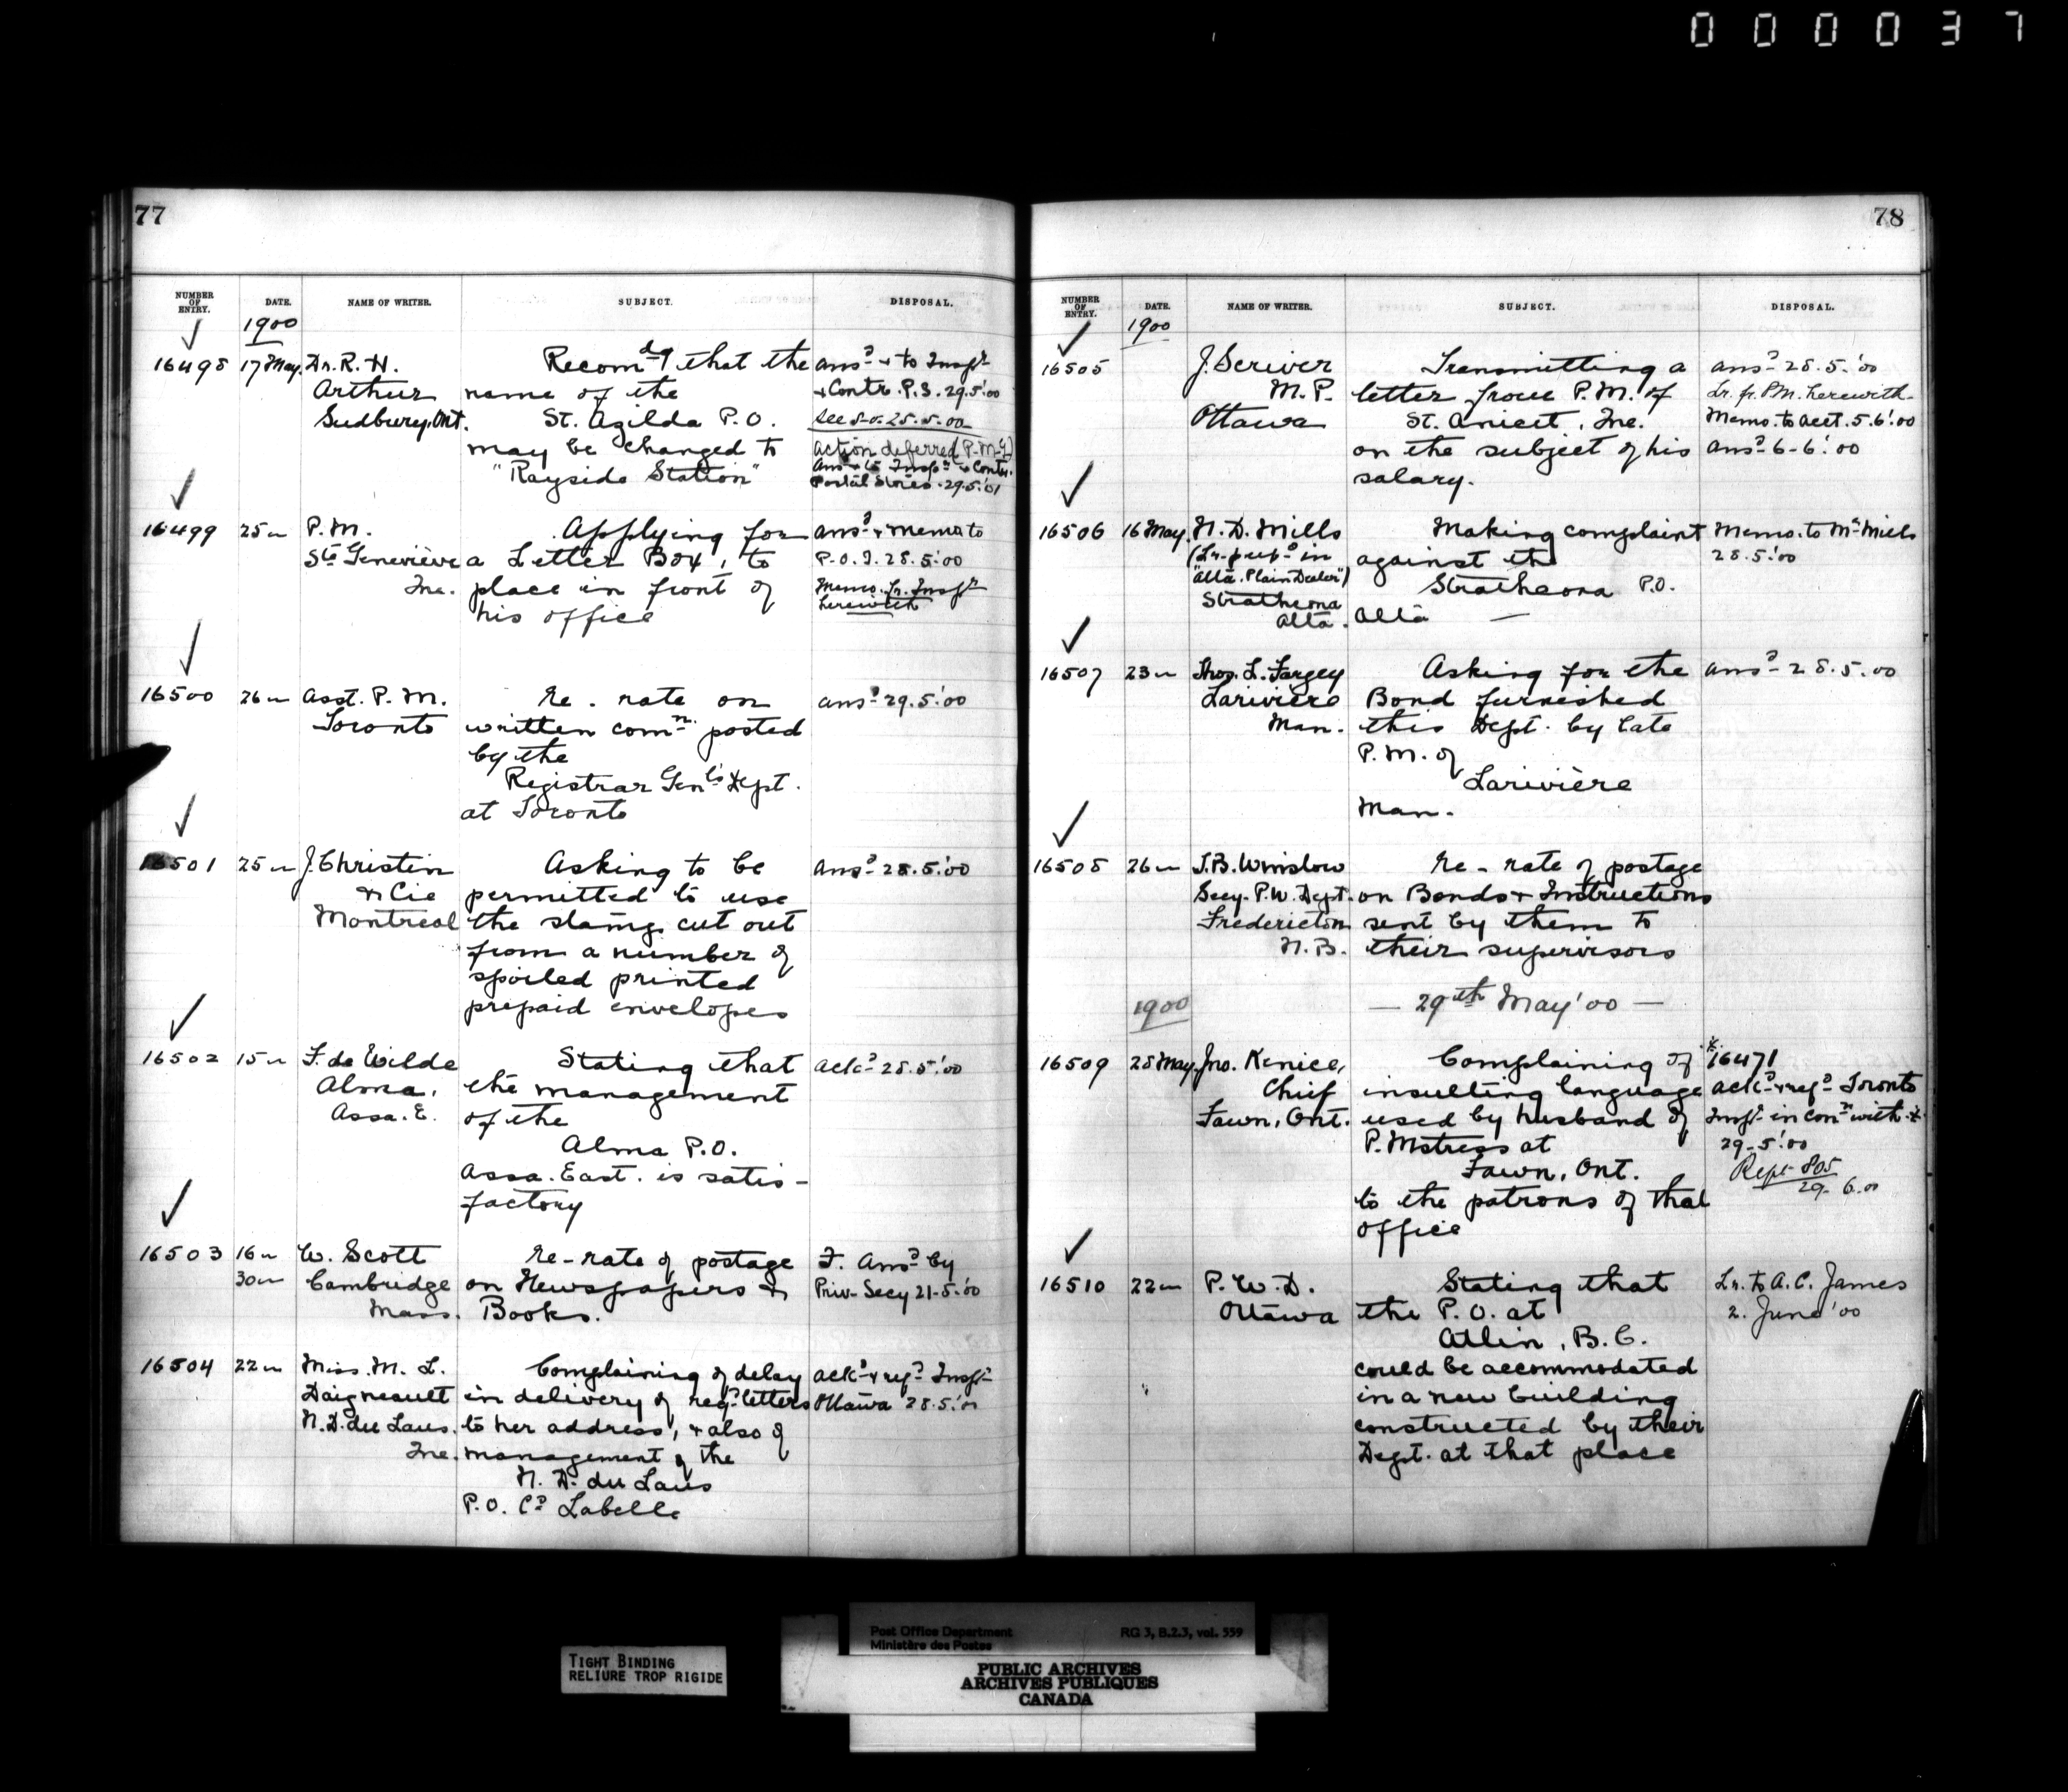 000037
77
NUMBER OF ENTRY. DATE. NAME OF WRITER. SUBJECT. DISPOSAL.
1900
16498 17 May. Dr. R. H. Recomdg that the ansd & to Inspr
Arthur name of the & Contr. P.S. 29.5.'00
Sudbury, Ont. St. Azilda P.O. See 25.5.00
may be changed to action deferred (P.M.G)
"Rayside Station" Ans & to Inspr & Contr.
Postal Stores. 29.5.'01
16499 25 " P.M. Applying for ansd & memo to
Ste Geneviève a Letter Box, to P.O.I. 28.5.'00
Que. place in front of Memo. fr. Inspr
his office herewith
16500 26 " Asst. P.M. Re. rate on ansd 29.5.'00
Toronto written comn. posted
by the
Registrar Genl's Dept.
at Toronto
16501 25 " J. Christin Asking to be ansd 28.5.'00
& Cie permitted to use
Montreal the stamps cut out
from a number of
spoiled printed
prepaid envelopes
16502 15 " F. de Wilde Stating that ackd 28.5.'00
Alma, the management
Assa. E. of the
Alma P.O.
Assa. East. is satis-
factory
16503 16 " W. Scott Re-rate of postage F. Ansd by
30 " Cambridge on Newspapers & Priv. Secy 21.5.'00
Mass. Books.
16504 22 " Miss. M. L. Complaining of delay ackd & refd Inspr
Daigneault in delivery of regd letters Ottawa 28.5.'00
N. D. du Laus. to her address, & also of
Que. management of the
N. D. du Laus
P.O. Co Labelle
78
NUMBER OF ENTRY. DATE. NAME OF WRITER. SUBJECT. DISPOSAL.
1900
16505 J. Scriver Transmitting a ansd 28.5.'00
M.P. letter from P.M. of Lr. fr. P.M. herewith
Ottawa St. Anicet, Que. Memo. to Acct. 5.6.'00
on the subject of his ansd 6-6.'00
salary.
16506 16 May. N. D. Mills Making complaint Memo. to Mr Mills
(Lr. in against the 28.5.'00
"Alta. Plain Dealer") Strathcona P.O.
Strathcona
Alta. Alta —
16507 23 " Thos. L. Fargey Asking for the ansd 28.5.00
Larivière Bond furnished
Man. this Dept. by late
P.M. of
Larivière
Man.
16508 26 " T.B. Winslow Re-rate of postage
Secy. P.W. Dept. on Bonds & Instructions
Fredericton sent by them to
N.B. their supervisors
1900 — 29th May '00 —
16509 28 May. Jno. Kenice, Complaining of * 16471
Chief insulting language ackd & refd Toronto
Fawn, Ont. used by husband of Inspr in conn with *
P. Mstress at 29-5.'00
Fawn, Ont. Rept 805
to the patrons of that 29-6.00
office
16510 22 " P.W.D. Stating that Lr. to A. C. James
Ottawa the P.O. at 2. June '00
Atlin, B.C.
could be accommodated
in a new building
constructed by their
Dept. at that place
Post Office Department RG 3, B.2.3, vol. 559
Ministère des Postes
TIGHT BINDING
RELIURE TROP RIGIDE
PUBLIC ARCHIVES
ARCHIVES PUBLIQUES
CANADA